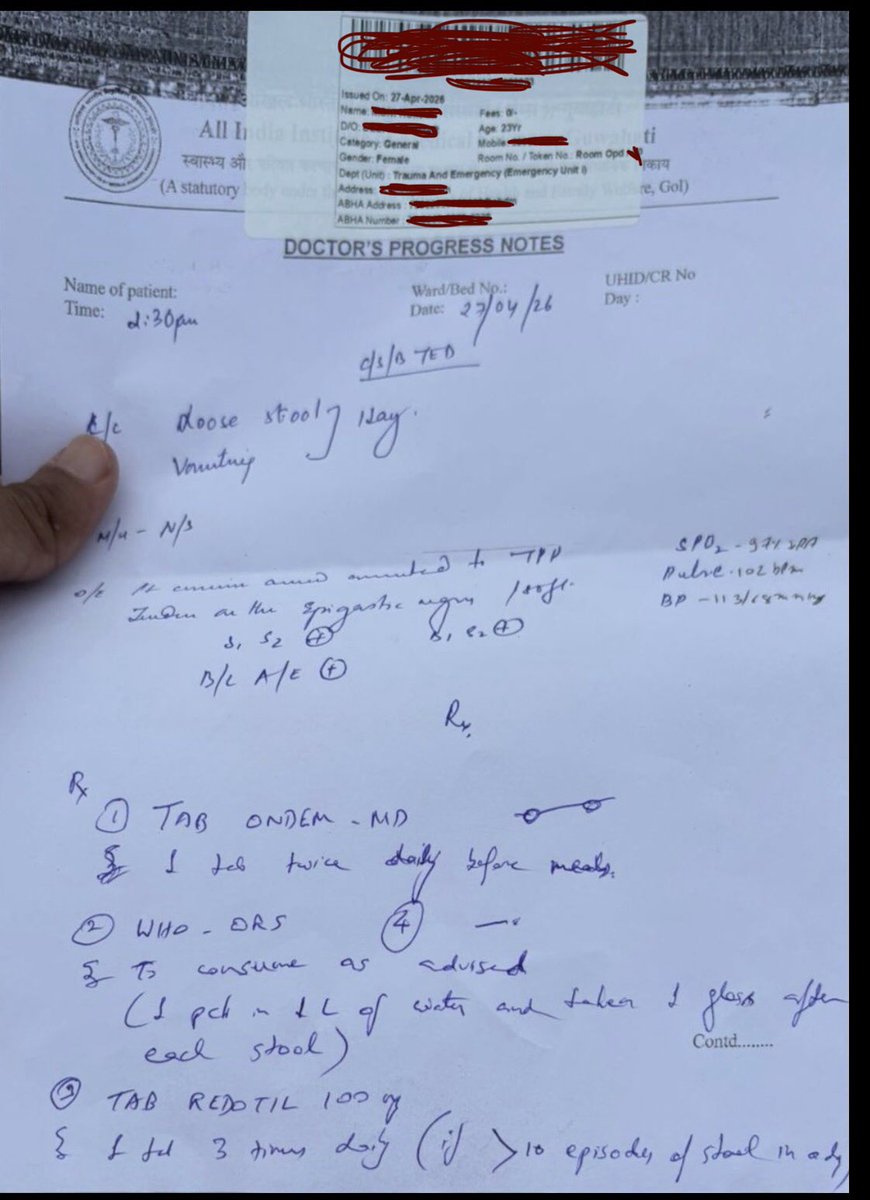 Issued On: 27-Apr-2026
Name:
Fees: 0/-
D/O:
Age: 23Yr
Category: General
Mobile
Gender: Female
Room No. / Token No.: Room Opd
Dept (Unit) : Trauma And Emergency (Emergency Unit I)
Address :
ABHA Address :
ABHA Number :
All India Instit
स्वास्थ्य औ
(A statutory
re, GoI)
DOCTOR'S PROGRESS NOTES
Name of patient:
Ward/Bed No.:
UHID/CR No
Time: 2:30pm
Date: 27/04/26
Day :
C/S/B TED
C/C Loose stool } 1day.
Vomiting
N/S
SPO2 - 97%
O/E
to TPP
Pulse - 102 bpm
Epigastric
BP - 113/
S1 S2 +
S1 S2 +
B/L A/E +
Rx
Rx
1 TAB ONDEM - MD
1 tab twice daily before meals.
2 WHO - ORS 4
To consume as advised
(1 pck in 1 L of water and taken 1 glass after
each stool)
Contd........
3 TAB REDOTIL 100 mg
1 tab 3 times daily (if >10 episodes of stool in a dy